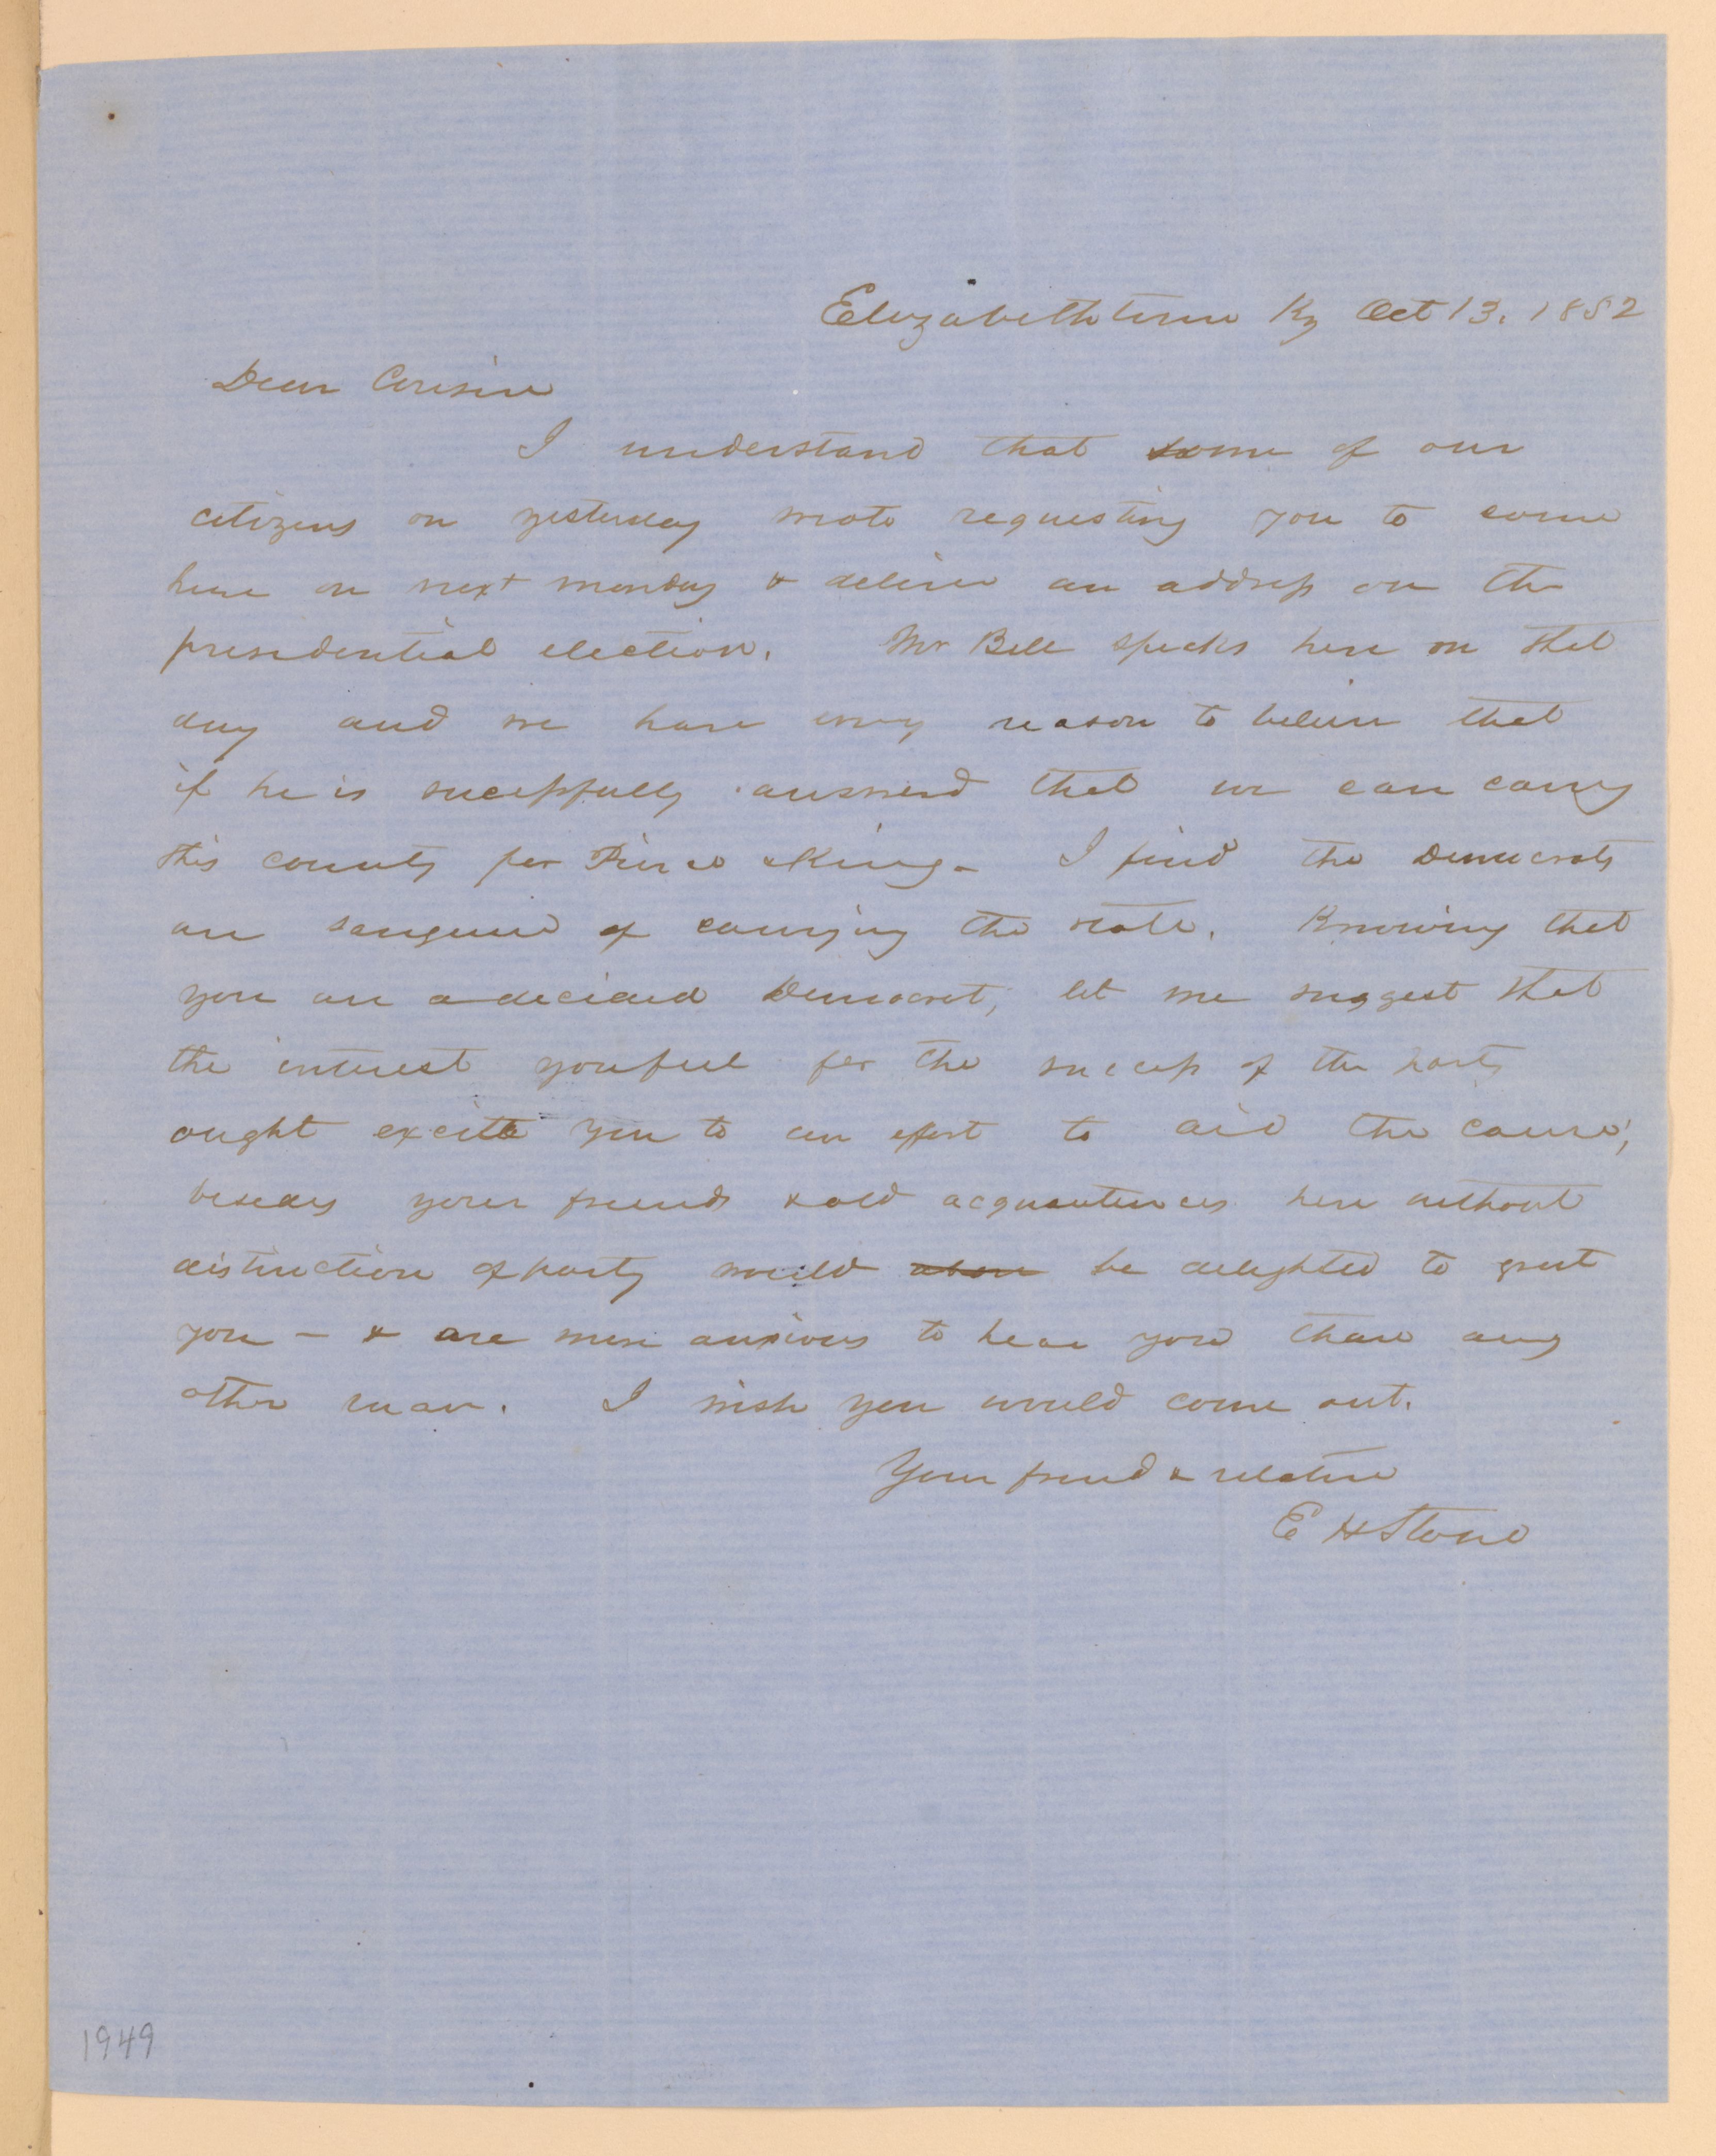 Elizabethtown Ky Oct 13. 1852
Dear Cousin
I understand that some of our
citizens on yesterday wrote requesting you to come
here on next monday & deliver an address on the
presidential election. Mr Bell speaks here on that
day and we have every reason to believe that
if he is successfully answered that we can carry
this county for Pierce & King - I find the Democrats
are sanguine of carrying the state. Knowing that
you are a decided Democrat, let me suggest that
the interest you feel for the success of the party
ought excite you to an effort to aid the cause;
besides your friends & old acquantances here without
distinction of party would be delighted to greet
you - & are more anxious to hear you than any
other man. I wish you would come out.
Your friend & relative
E H Stone
1949